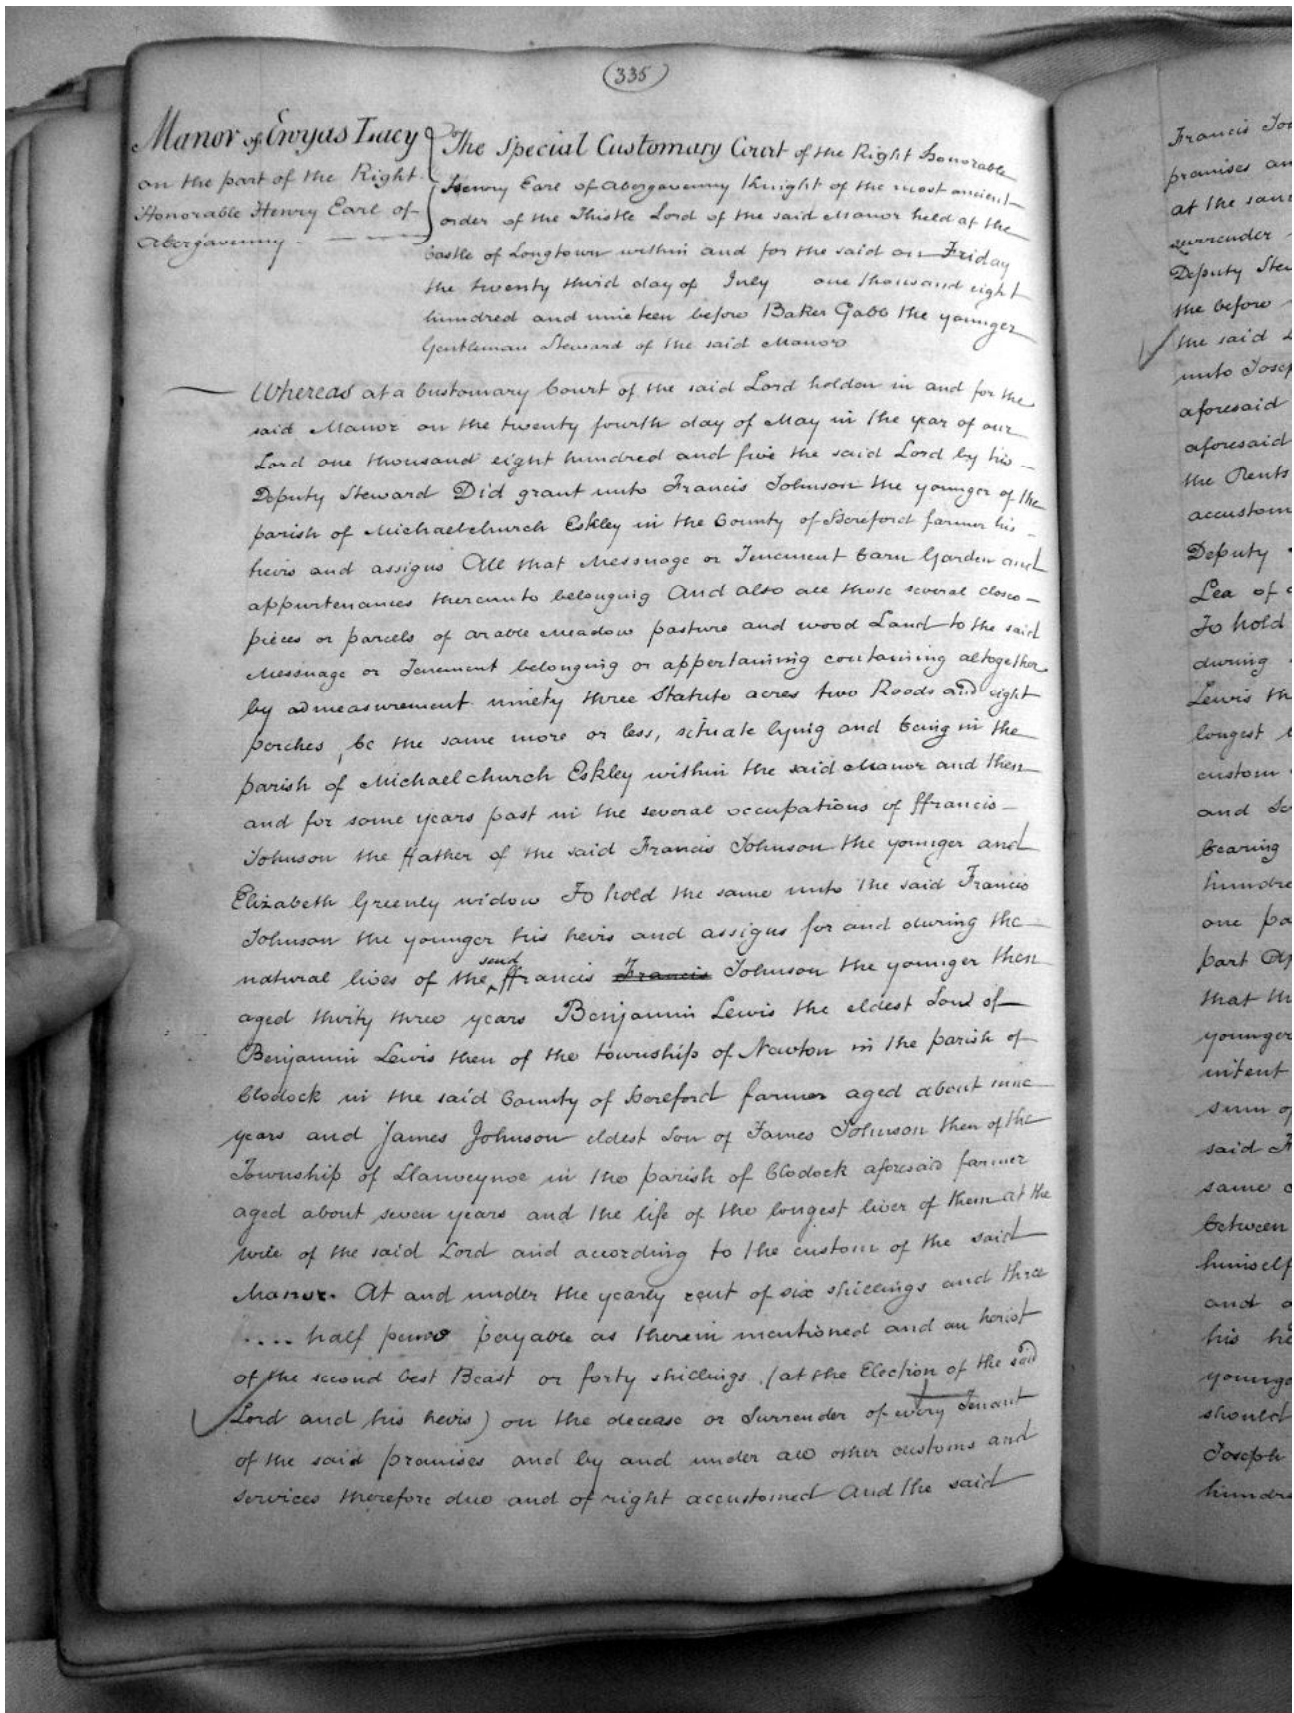 335
Manor of Ewyas Lacy
on the part of the Right
Honorable Henry Earl of
Abergavenny
The Special Customary Court of the Right Honorable
Henry Earl of Abergavenny Knight of the most ancient
order of the Thistle Lord of the said Manor held at the
Castle of Longtown within and for the said on Friday
the twenty third day of July one thousand eight
hundred and nineteen before Baker Gabb the younger
Gentleman Steward of the said Manor
Whereas at a Customary Court of the said Lord holden in and for the
said Manor on the twenty fourth day of May in the year of our
Lord one thousand eight hundred and five the said Lord by his
Deputy Steward Did grant unto Francis Johnson the younger of the
parish of Michaelchurch Eskley in the County of Hereford farmer his
heirs and assigns All that Messuage or Tenement Barn Garden and
appurtenances thereunto belonging And also all those several closes
pieces or parcels of arable meadow pasture and wood Land to the said
Messuage or Tenement belonging or appertaining containing altogether
by admeasurement ninety three Statute acres two Roods and eight
perches, be the same more or less, situate lying and being in the
parish of Michaelchurch Eskley within the said Manor and then
and for some years past in the several occupations of ffrancis
Johnson the ffather of the said Francis Johnson the younger and
Elizabeth Greenly widow To hold the same unto the said Francis
Johnson the younger his heirs and assigns for and during the
natural lives of the said ffrancis Francis Johnson the younger then
aged thirty three years Benjamin Lewis the eldest Son of
Benjamin Lewis then of the township of Newton in the parish of
Clodock in the said County of Hereford farmer aged about nine
years and James Johnson eldest Son of James Johnson then of the
Township of Llanveynoe in the parish of Clodock aforesaid farmer
aged about seven years and the life of the longest liver of them at the
will of the said Lord and according to the custom of the said
Manor. At and under the yearly rent of six shillings and three
.... half pence payable as therein mentioned and an heriot
of the second best Beast or forty shillings (at the Election of the said
Lord and his heirs) on the decease or Surrender of every Tenant
of the said premises and by and under all other customs and
services therefore due and of right accustomed And the said
Francis
premises
at the
surrender
Deputy
the before
the said
unto
aforesaid
aforesaid
the Rents
Deputy
Lea of
To hold
during
Lewis
longest
custom
and
bearing
one
part
that
younger
intent
sum of
said
same
between
himself
and
his
should
Joseph